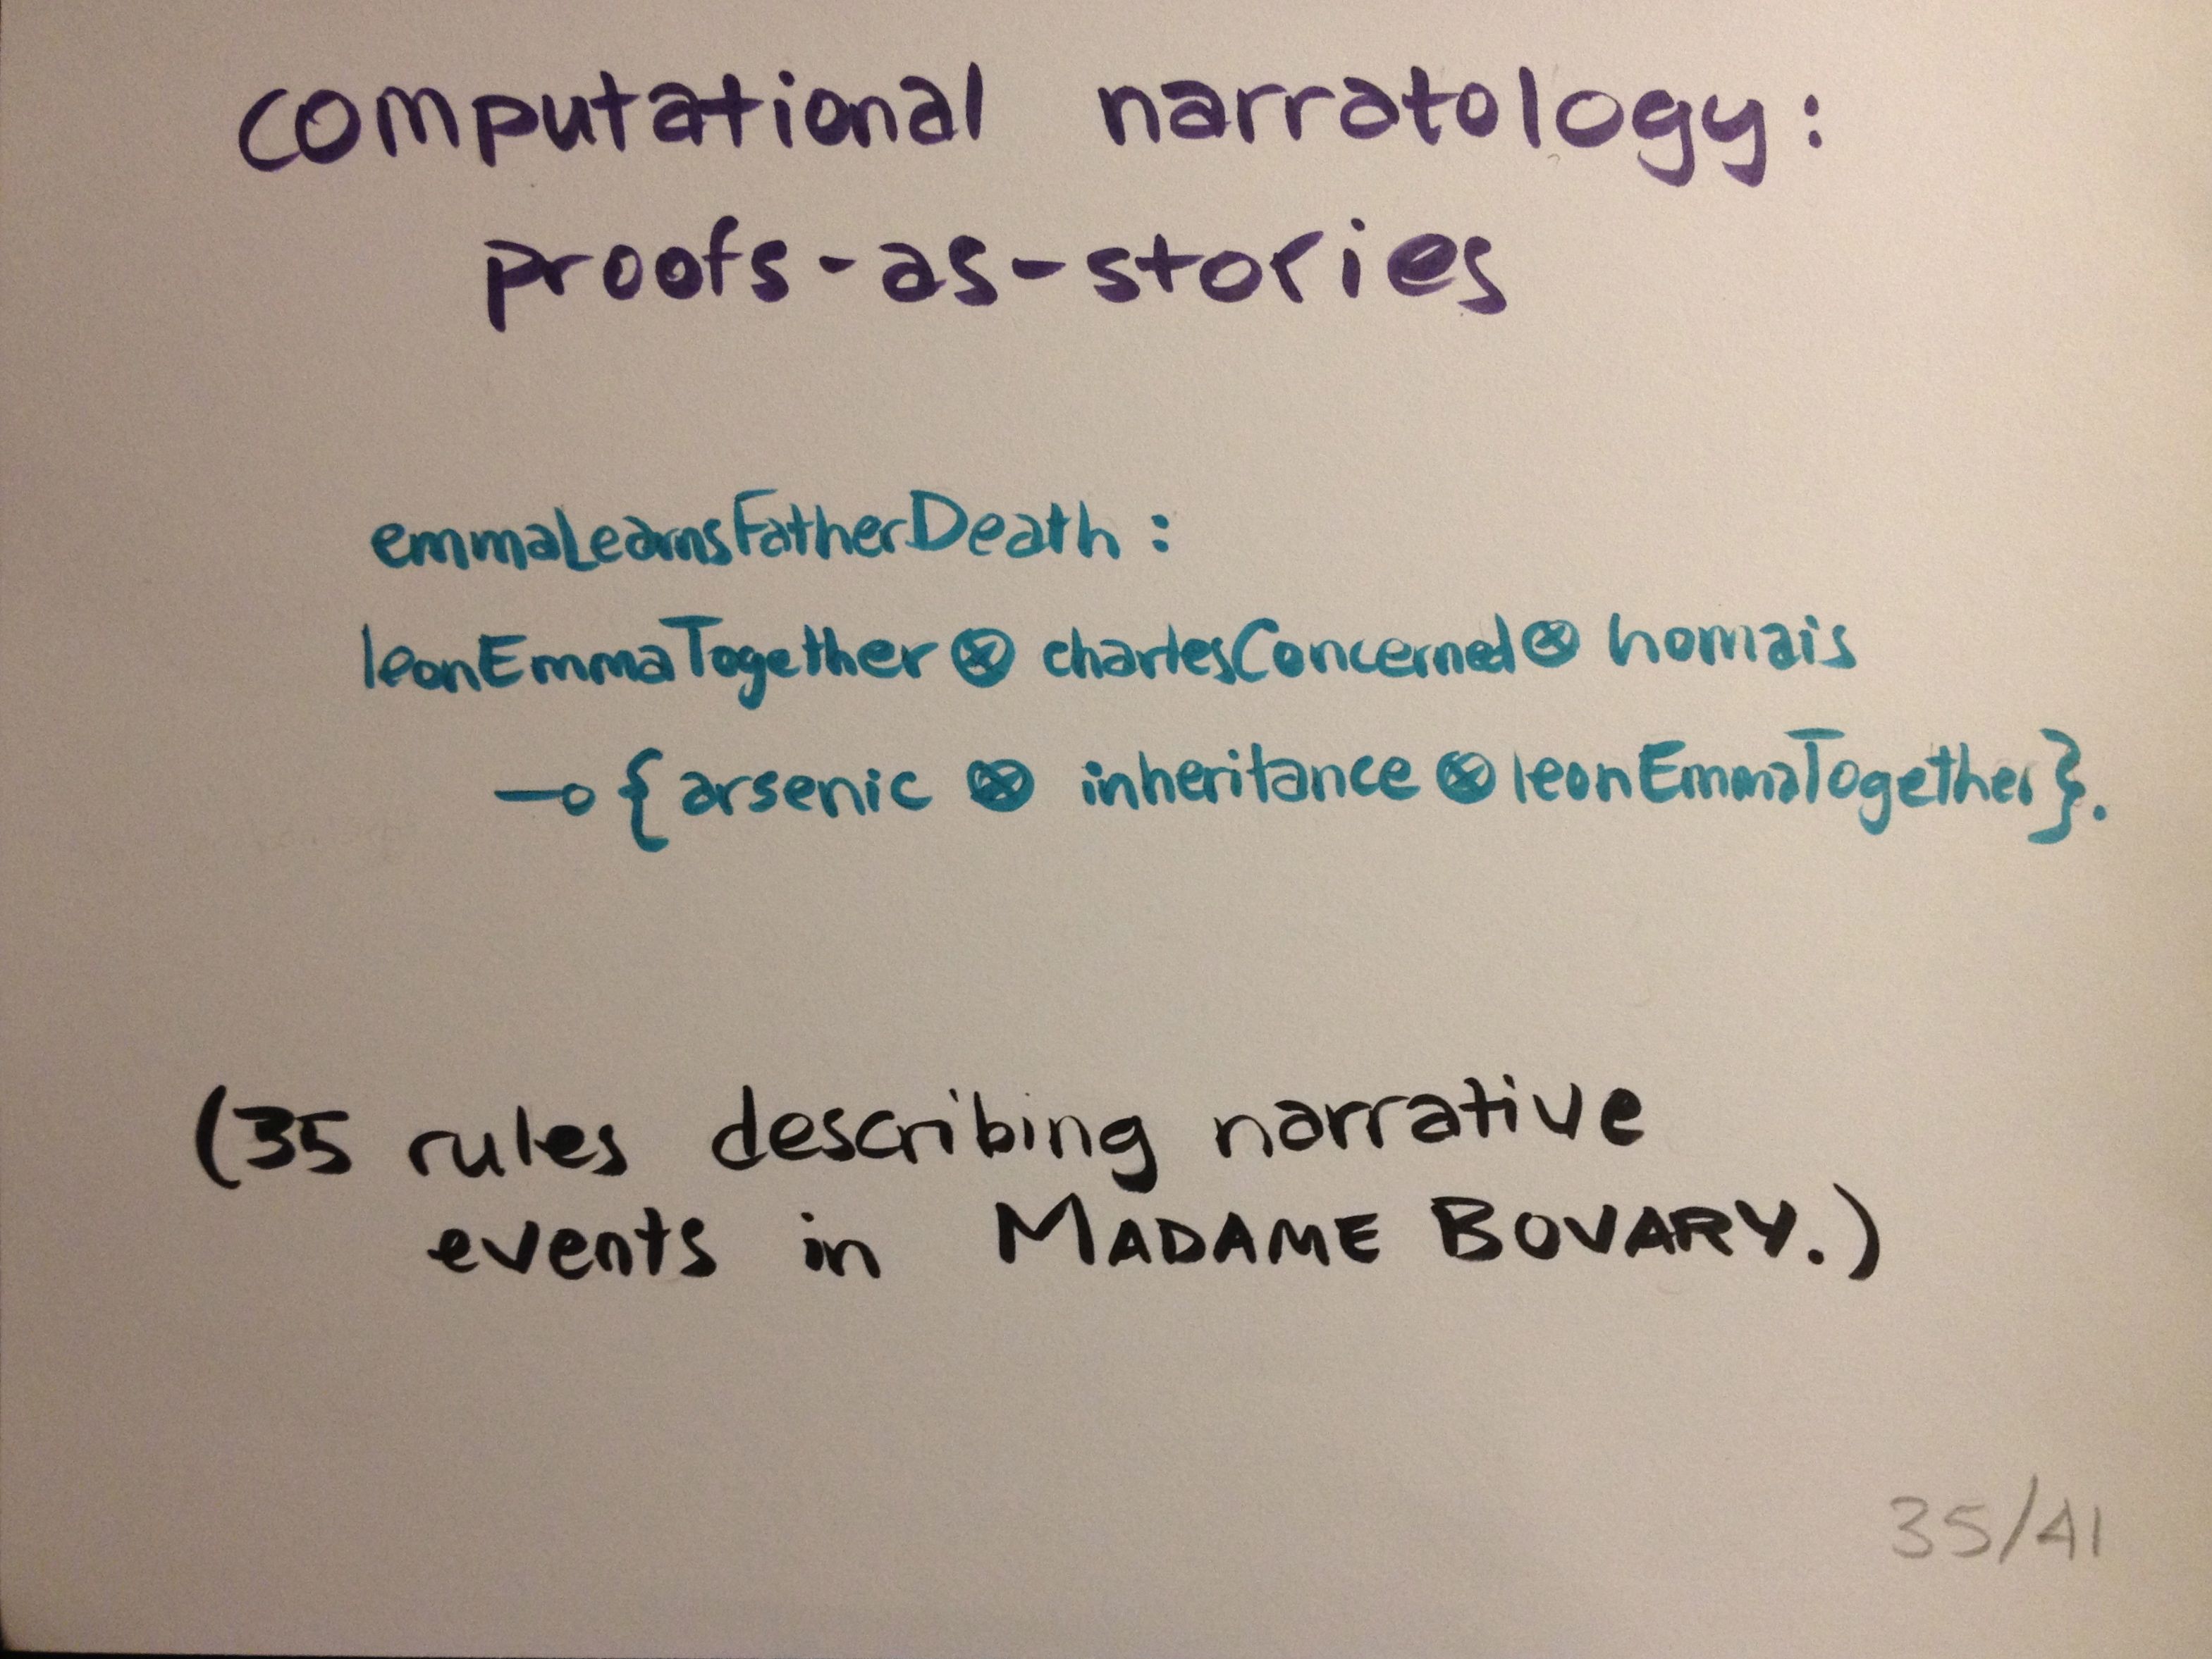 computational narratology:
proofs-as-stories
emmaLearnsFatherDeath :
leonEmmaTogether ⊗ charlesConcerned ⊗ homais
⊸ {arsenic ⊗ inheritance ⊗ leonEmmaTogether}.
(35 rules describing narrative
events in MADAME BOVARY.)
35/41